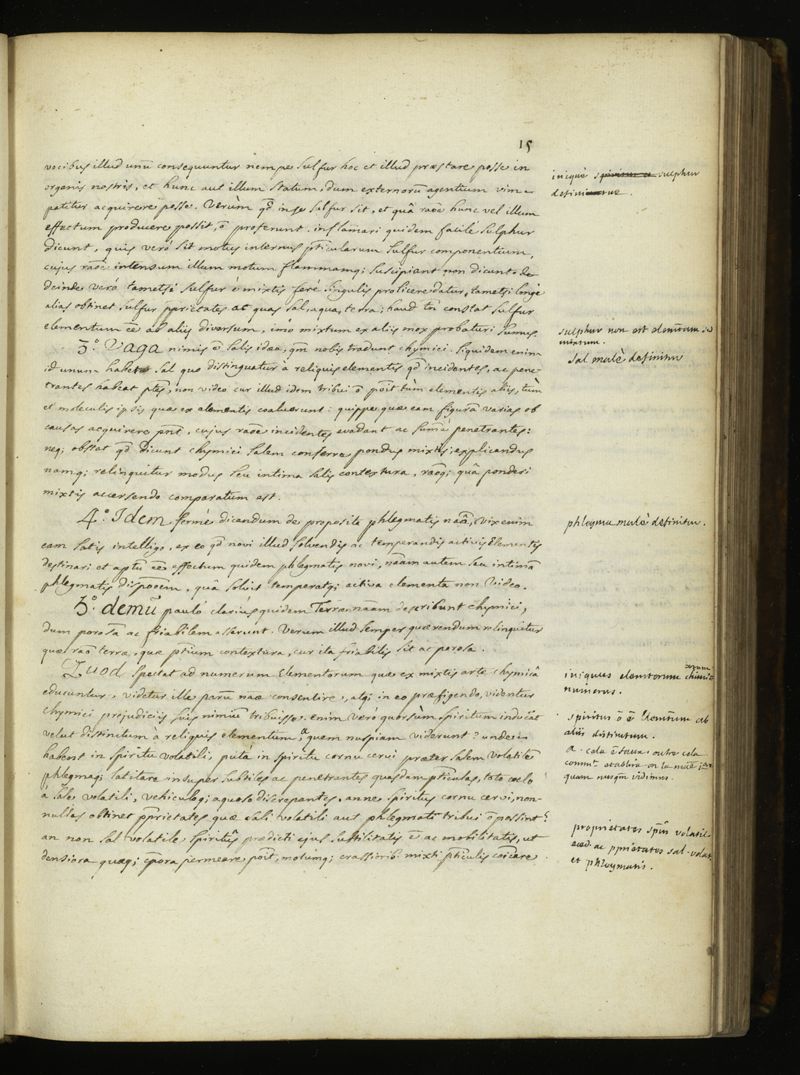 15
vocibus illud unū consequuntur nempe sulfur hoc et illud præstare posse in
organis nostris, et hunc aut illum statum, dum externorū agentium vim
patitur acquirere posse. Verùm qd in se sulfur sit, et quâ raōe hunc vel illum
effectum producere possit, ō proferunt. inflamari quidem facilè sulphur
dicunt, quis verò sit motus internus pticularum sulfur componentium,
cujus raōe intensum illum motum flammamq; suscipiant non dicunt. de
deinde verò tametsi sulfur e mixtis ferè singulis prolicere datur, tametsi longè
alias obtinet sulfur pprietates ac quas sal, aqua, terra; haud tn constat sulfur
elementum ēē ab aliis diversum, imò mixtum ex aliis mox probaturi sumus.
3.° Vaga nimis ē salis idea, qm nobis tradunt chymici. siquidem enim
id unum habet sal quo distinguatur à reliquis elementis qd incidentes, ac pene
trantes habeat ptes, non video cur illud idem tribui ō poīt tùm elementis aliis, tùm
et moleculis ipsis quæ ex elementis coaluerunt: quippe quæ eam figurā varias ob
causas acquirere pnt, cujus raōe incidentes evadant ac sumē penetrantes:
neq; obstat qd dicunt chymici salem conferre pondus mixtis; explicandus
namq; relinquitur modus seu intima salis contextura, raōq; quâ ponderi
mixtis accersendo comparatum est.
4.° Idem fermè dicandum de proposita phlegmatis naā, vix enim
eam satis intelligo, ex eo qd novi illud solvendis ac temperandis activis elementis
destinari et aptū ēē effectum quidem phlegmatis novi, naam autem seu intimā
phlegmatis dispōem, quâ solvit temperatq; activa elementa non video.
5.° demū paulò clariùs quidem terræ naam describunt chymici,
dum porosā ac friabilem asserunt. Verum illud semper quærendum relinquitur
quæ raō terræ, quæ ptium contextura, cur ita friabilis sit ac porosa.
Quod spectat ad numerum elementorum quæ ex mixtis arte chymicâ
educuntur, videtur ille parū naæ consentire, atq; in eo præfigendo, videntur
chymici prejudiciis suis nimiū tribuisse. enim vero quorsùm spiritum inducāt
velut distinctum à reliquis elementum, a quem nuspiam viderunt? unde
habent in spiritu volatili, putà in spiritu cornu cervi præter salem volatilē
phlegmaq; latitare insuper subtiles ac penetrantes quasdam pticulas, toto cœlo
à sale volatili, vehiculoq; aquoso discrepantes, anne spiritus cornu cervi, non
nullas obtinet pprietates quæ sali volatili aut phlegmati tribui ō possint?
an non sal volatile spiritûs predicti ejus subtilitatis ē ac mobilitatis, ut
densiora quæq; cpora permeare poīt, motumq; crassiorib. mixti pticulis conciare
iniquè sulphur
definitur.
sulphur non est elementum sed
mixtum.
sal malè definitur
phlegma malè definitur.
iniquus elementorum chimic
numerus.
spiritus ō ē elementum ab
aliis distinctum.
a. cela
quam nusqm vidimus.
proprietates spūs volatil
eæd. ac pprietates sal. volat.
et phlegmatis.